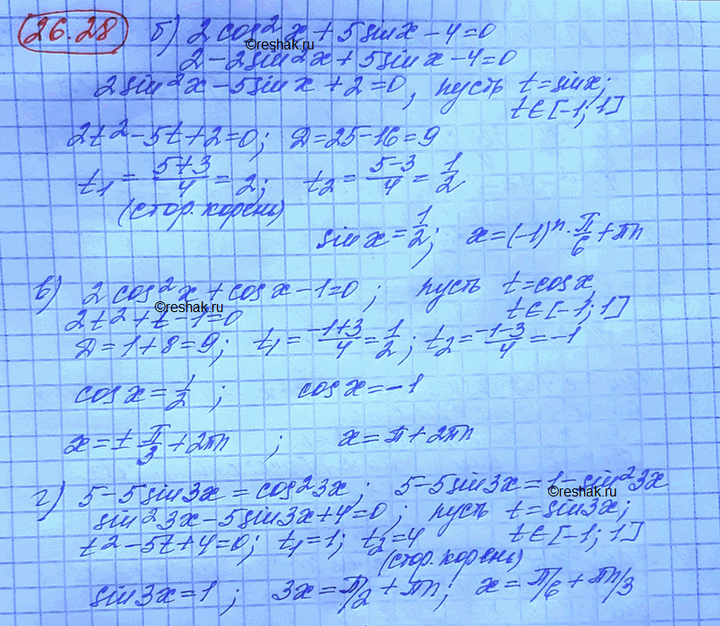 26.28
б) 2 cos²x + 5 sin x - 4 = 0
©reshak.ru
2 - 2 sin²x + 5 sin x - 4 = 0
2 sin²x - 5 sin x + 2 = 0, пусть t = sin x;
t ∈ [-1; 1]
2t² - 5t + 2 = 0; D = 25 - 16 = 9
t₁ = (5+3)/4 = 2; t₂ = (5-3)/4 = 1/2
(стор. корень)
sin x = 1/2; x = (-1)ⁿ · π/6 + πn
в) 2 cos²x + cos x - 1 = 0; пусть t = cos x
©reshak.ru
2t² + t - 1 = 0 t ∈ [-1; 1]
D = 1 + 8 = 9; t₁ = (-1+3)/4 = 1/2; t₂ = (-1-3)/4 = -1
cos x = 1/2; cos x = -1
x = ± π/3 + 2πn; x = π + 2πn
г) 5 - 5 sin 3x = cos²3x; 5 - 5 sin 3x = 1 - sin²3x
©reshak.ru
sin²3x - 5 sin 3x + 4 = 0; пусть t = sin 3x;
t² - 5t + 4 = 0; t₁ = 1; t₂ = 4 t ∈ [-1; 1]
(стор. корень)
sin 3x = 1; 3x = π/2 + πn; x = π/6 + πn/3